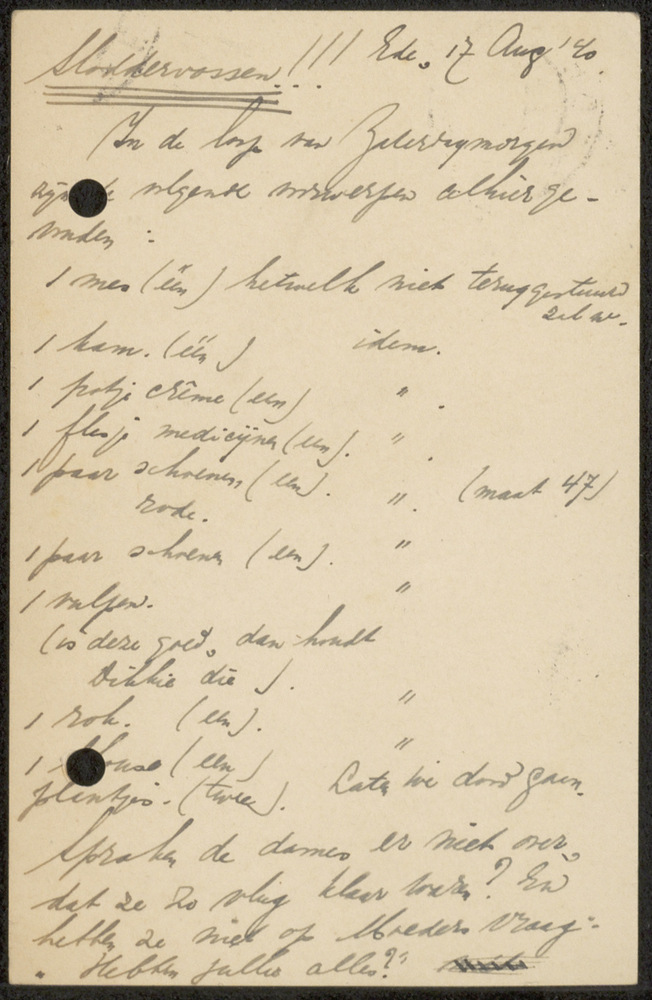 Slokkervossen!!! Ede, 17 Aug '40.
In de loop van Zaterdagmorgen
zijn de volgende voorwerpen alhier ge-
vonden:
1 mes (één) hetwelk niet teruggestuurd
zal w.
1 kam. (één) idem.
1 potje crême (een) " .
1 flesje medicijnen (een). " .
1 paar schoenen (een). " . (maat 47)
rode.
1 paar schoenen (een). "
1 vulpen. "
(is deze goed, dan houdt
Dikkie die).
1 rok. (een). "
1 blouse (een) "
(twee). Laten we door gaan.
Spraken de dames er niet over,
dat ze zo vlug klaar waren? En
hebben ze niet op Moeders vraag:
" Hebben jullie alles?"